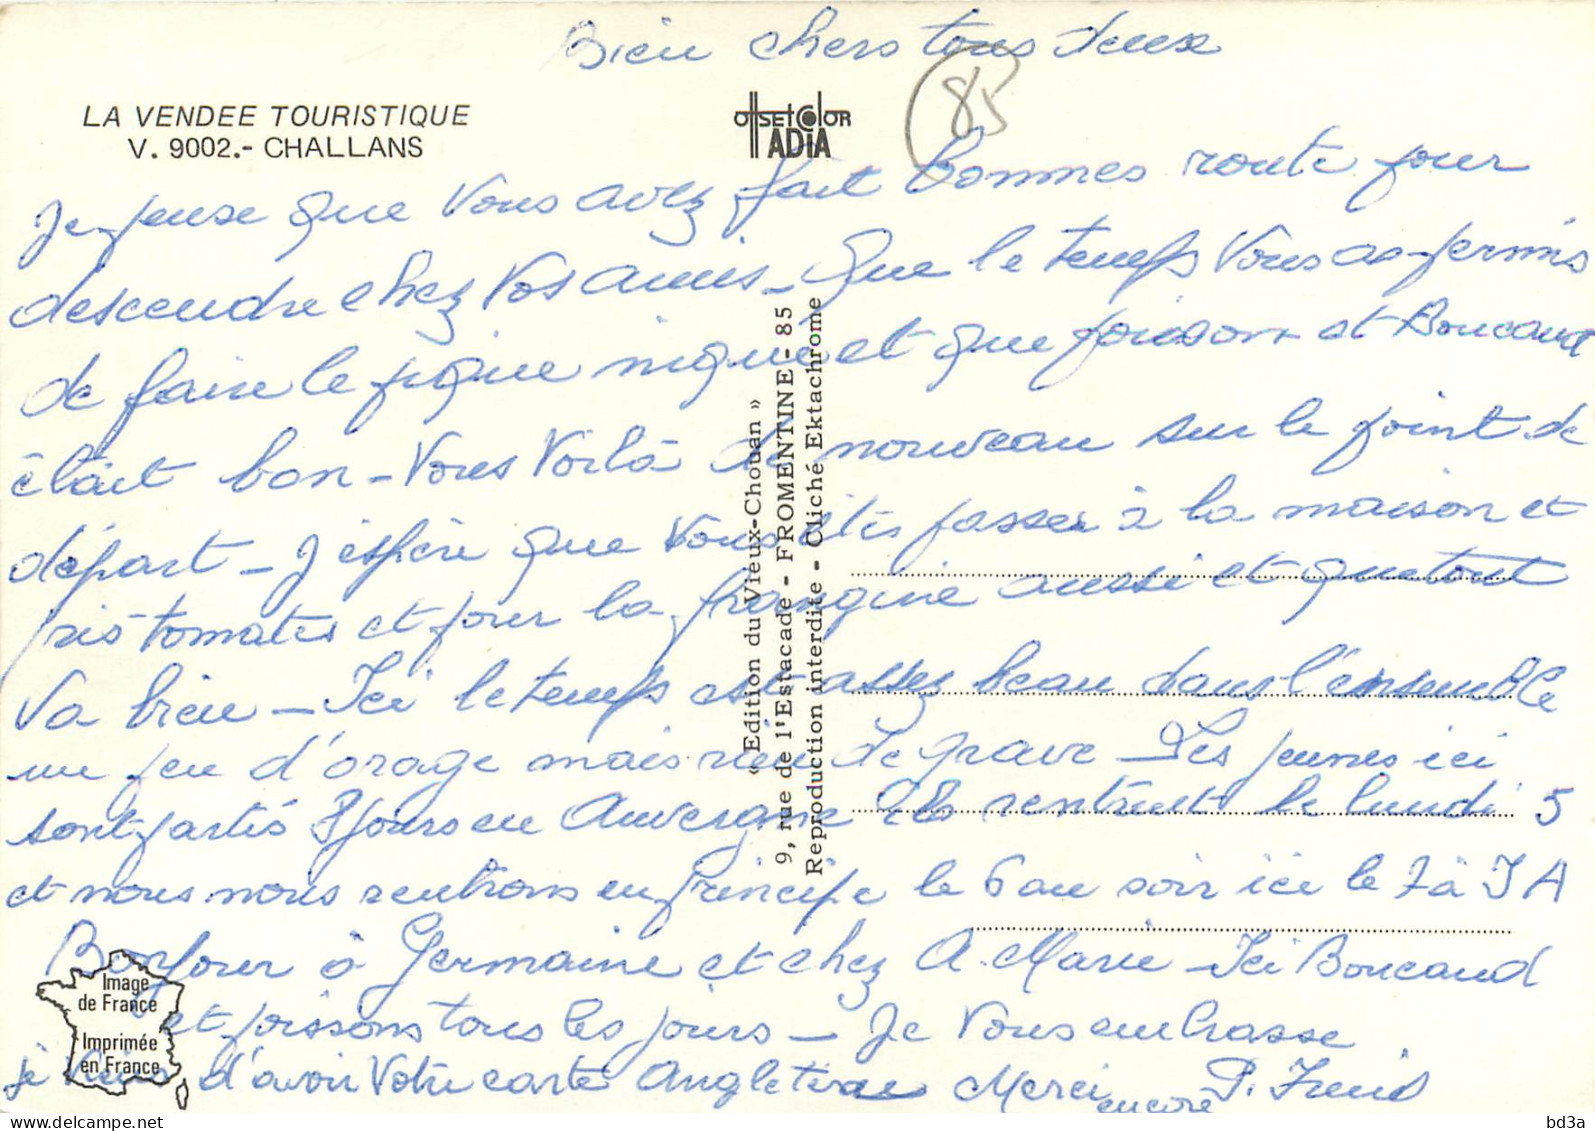 Bien chers tous deux
85
LA VENDEE TOURISTIQUE
V. 9002.- CHALLANS
offset Color
ADIA
Je pense que vous avez fait bonnes route pour
descendre chez vos amis - que le temps vous as permis
de faire le pique nique et que poisson et Boucaud
était bon - Vous voilà de nouveau sur le point de
départ - J'espère que vous êtes passer à la maison et
pris tomates et pour la frangine aussi et que tout
va bien - Ici le temps est assez beau dans l'ensemble
un peu d'orage mais rien de grave - Les jeunes ici
sont partis 8 jours en Auvergne Ils rentrent le lundi 5
et nous nous rentrons en principe le 6 au soir ici le 7 à J A
Bonjour à Germaine et chez A. Marie - Ici Boucaud
et poissons tous les jours - Je vous embrasse
je viens d'avoir votre carte Angleterre Merci
encore
P.
« Edition du Vieux-Chouan »
9, rue de l'Estacade - FROMENTINE - 85
Reproduction interdite - Cliché Ektachrome
Image
de France
Imprimée
en France
bd3a